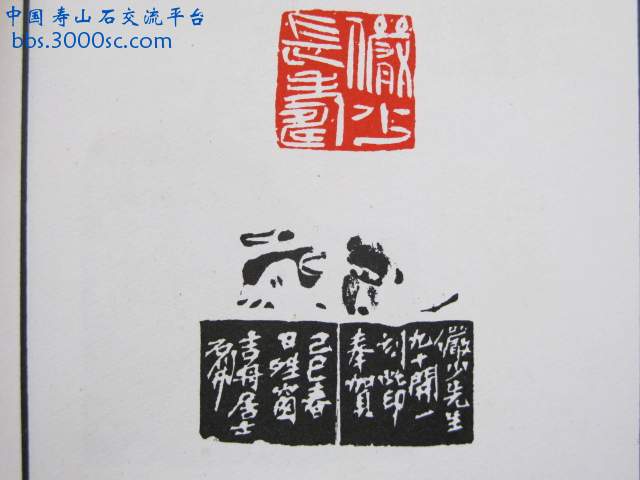 中国寿山石交流平台
bbs.3000sc.com
儼少
長壽
儼少先生
九十開一
刻此印
奉賀
己巳春
日 窗
書舟居士
石